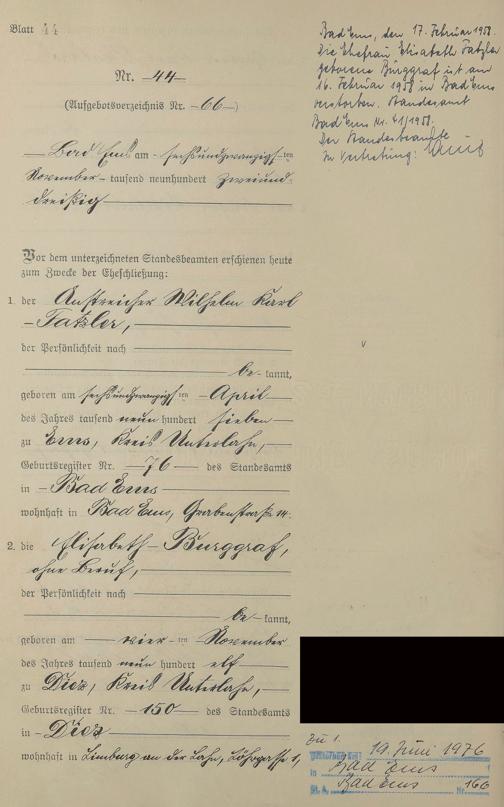 Blatt 44
Nr. 44
(Aufgebotsverzeichnis Nr. 66)
Bad Ems am sechsundzwanzigsten
November tausend neunhundert zweiund-
dreißig
Vor dem unterzeichneten Standesbeamten erschienen heute
zum Zwecke der Eheschließung:
1. der Anstreicher Wilhelm Karl
Tatzler,
der Persönlichkeit nach
be kannt,
geboren am sechsundzwanzigsten April
des Jahres tausend neun hundert sieben
zu Ems, Kreis Unterlahn,
Geburtsregister Nr. 76 des Standesamts
in Bad Ems
wohnhaft in Bad Ems, Grabenstraße 14.
2. die Elisabeth Burggraf,
ohne Beruf,
der Persönlichkeit nach
be kannt,
geboren am vier ten November
des Jahres tausend neun hundert elf
zu Diez, Kreis Unterlahn,
Geburtsregister Nr. 150 des Standesamts
in Diez
wohnhaft in Limburg an der Lahn, 1,
Bad Ems, den 17. Februar 1958.
Die Ehefrau Elisabeth Tatzler
geborene Burggraf ist am
16. Februar 1958 in Bad Ems
verstorben. Standesamt
Bad Ems Nr. 41/1958.
Der Standesbeamte
In Vertretung:
zu 1.
19. Juni 1976
in Bad Ems
St. A. Bad Ems Nr. 166